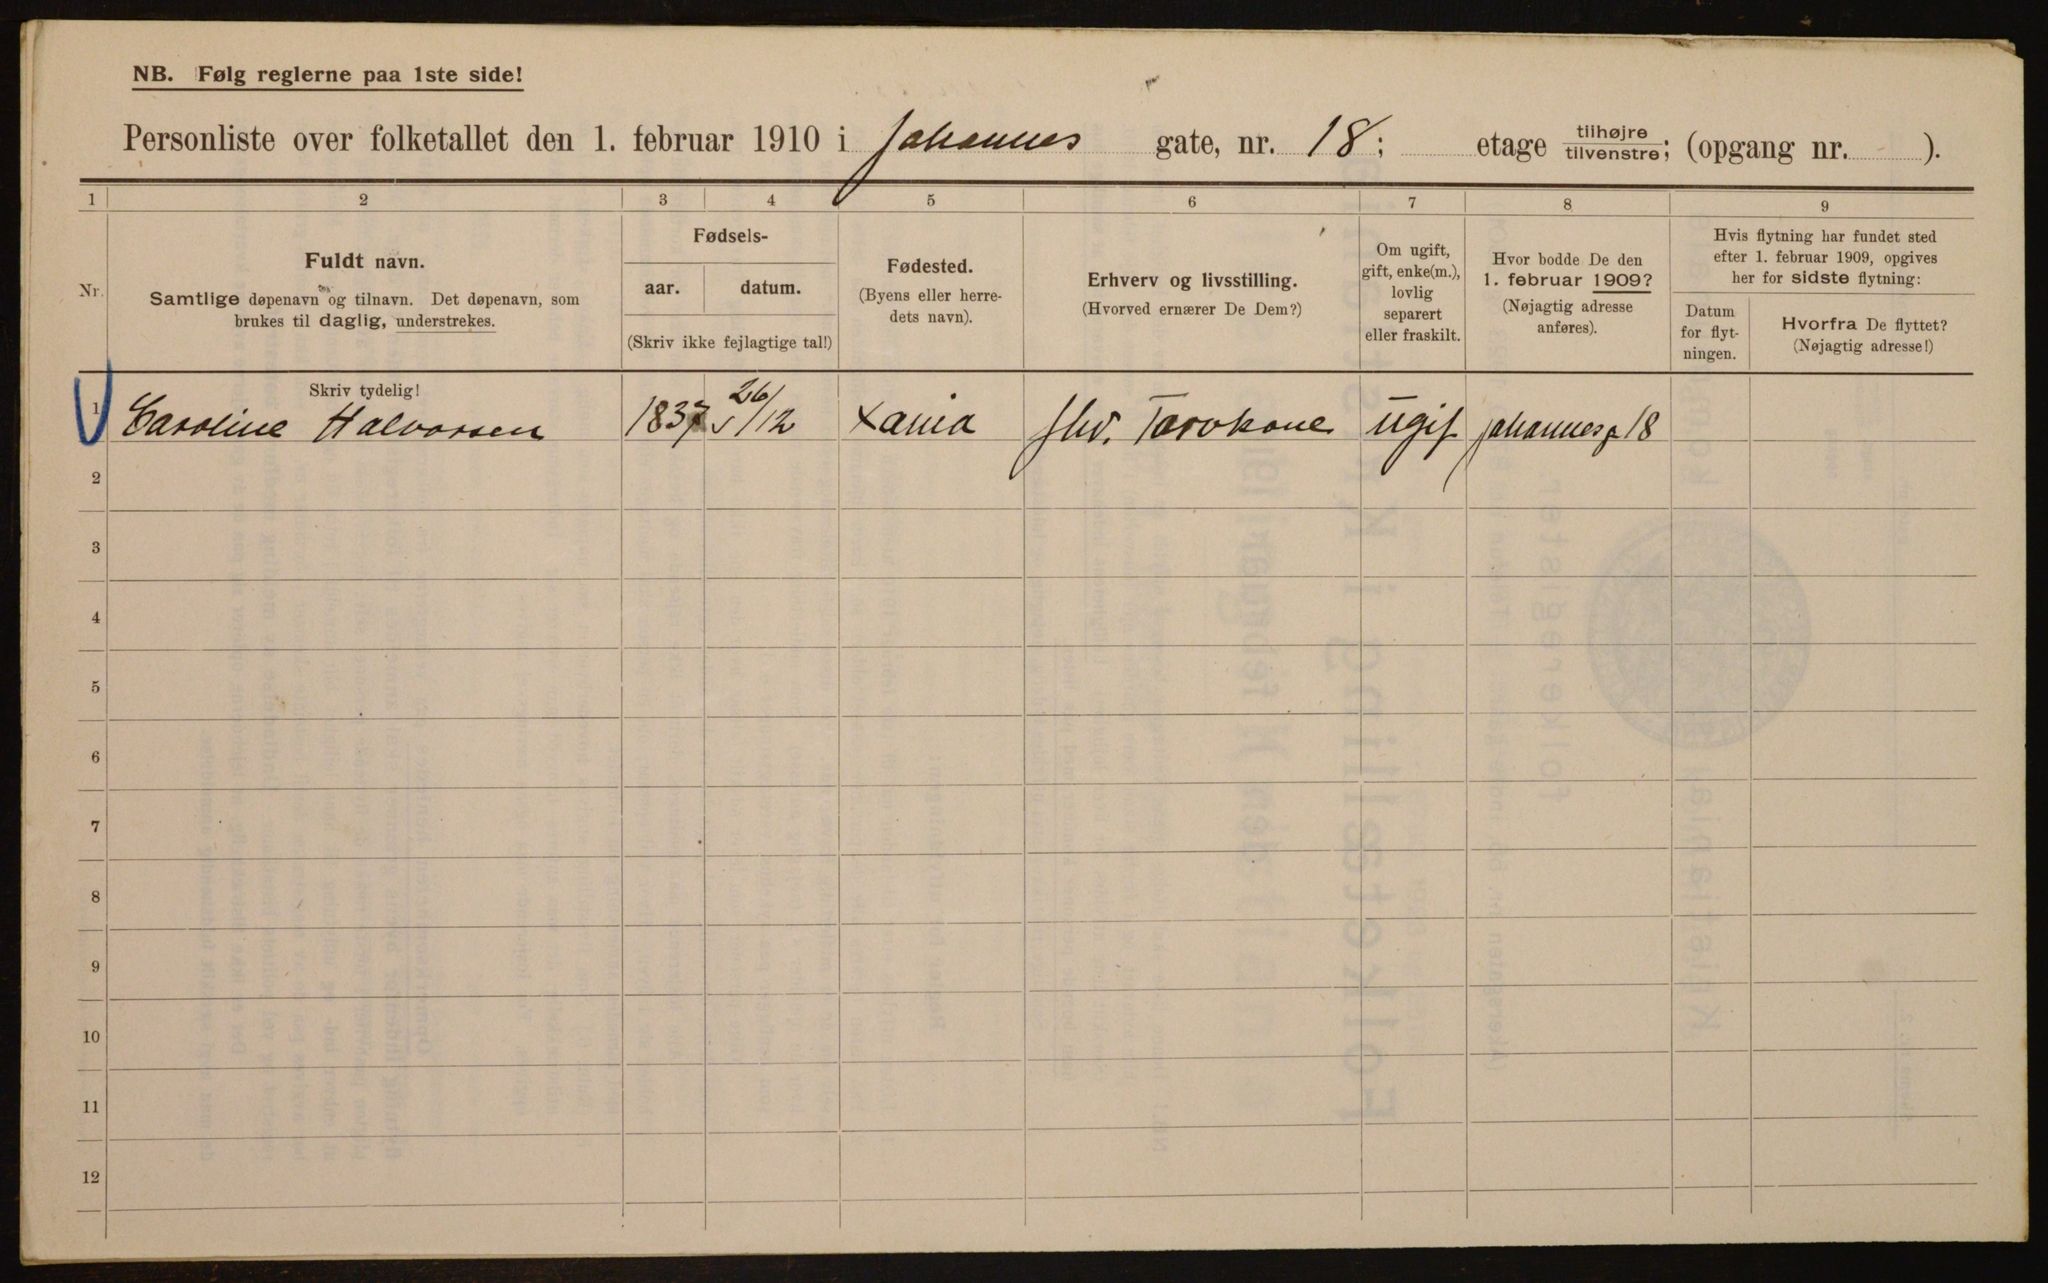 NB. Følg reglerne paa 1ste side!
Personliste over folketallet den 1. februar 1910 i Johannes gate, nr. 18; etage tilhøjre/tilvenstre; (opgang nr. ).
1 2 3 4 5 6 7 8 9
Nr.
Fuldt navn.
Samtlige døpenavn og tilnavn. Det døpenavn, som
brukes til daglig, understrekes.
Fødsels-
aar. datum.
(Skriv ikke fejlagtige tal!)
Fødested.
(Byens eller herre-
dets navn).
Erhverv og livsstilling.
(Hvorved ernærer De Dem?)
Om ugift,
gift, enke(m.),
lovlig
separert
eller fraskilt.
Hvor bodde De den
1. februar 1909?
(Nøjagtig adresse
anføres).
Hvis flytning har fundet sted
efter 1. februar 1909, opgives
her for sidste flytning:
Datum
for flyt-
ningen.
Hvorfra De flyttet?
(Nøjagtig adresse!)
Skriv tydelig!
1 Caroline Halvorsen 1837 26/12 Xania fhv. Torvkone ugif Johannesg 18
2
3
4
5
6
7
8
9
10
11
12